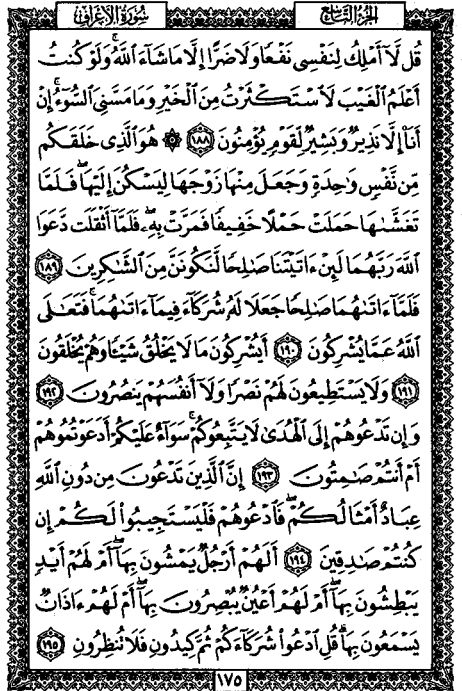 سُورَةُ الأَعْرَافِ
الجُزْءُ التَّاسِعُ
قُل لَّآ أَمْلِكُ لِنَفْسِى نَفْعًا وَلَا ضَرًّا إِلَّا مَا شَآءَ ٱللَّهُ ۚ وَلَوْ كُنتُ
أَعْلَمُ ٱلْغَيْبَ لَٱسْتَكْثَرْتُ مِنَ ٱلْخَيْرِ وَمَا مَسَّنِىَ ٱلسُّوٓءُ ۚ إِنْ
أَنَا۠ إِلَّا نَذِيرٌ وَبَشِيرٌ لِّقَوْمٍ يُؤْمِنُونَ ١٨٨ ۞ هُوَ ٱلَّذِى خَلَقَكُم
مِّن نَّفْسٍ وَٰحِدَةٍ وَجَعَلَ مِنْهَا زَوْجَهَا لِيَسْكُنَ إِلَيْهَا ۖ فَلَمَّا
تَغَشَّىٰهَا حَمَلَتْ حَمْلًا خَفِيفًا فَمَرَّتْ بِهِۦ ۖ فَلَمَّآ أَثْقَلَت دَّعَوَا
ٱللَّهَ رَبَّهُمَا لَئِنْ ءَاتَيْتَنَا صَٰلِحًا لَّنَكُونَنَّ مِنَ ٱلشَّٰكِرِينَ ١٨٩
فَلَمَّآ ءَاتَىٰهُمَا صَٰلِحًا جَعَلَا لَهُۥ شُرَكَآءَ فِيمَآ ءَاتَىٰهُمَا ۚ فَتَعَٰلَى
ٱللَّهُ عَمَّا يُشْرِكُونَ ١٩٠ أَيُشْرِكُونَ مَا لَا يَخْلُقُ شَيْـًٔا وَهُمْ يُخْلَقُونَ
١٩١ وَلَا يَسْتَطِيعُونَ لَهُمْ نَصْرًا وَلَآ أَنفُسَهُمْ يَنصُرُونَ ١٩٢
وَإِن تَدْعُوهُمْ إِلَى ٱلْهُدَىٰ لَا يَتَّبِعُوكُمْ ۚ سَوَآءٌ عَلَيْكُمْ أَدَعَوْتُمُوهُمْ
أَمْ أَنتُمْ صَٰمِتُونَ ١٩٣ إِنَّ ٱلَّذِينَ تَدْعُونَ مِن دُونِ ٱللَّهِ
عِبَادٌ أَمْثَالُكُمْ ۖ فَٱدْعُوهُمْ فَلْيَسْتَجِيبُوا۟ لَكُمْ إِن
كُنتُمْ صَٰدِقِينَ ١٩٤ أَلَهُمْ أَرْجُلٌ يَمْشُونَ بِهَآ ۖ أَمْ لَهُمْ أَيْدٍ
يَبْطِشُونَ بِهَآ ۖ أَمْ لَهُمْ أَعْيُنٌ يُبْصِرُونَ بِهَآ ۖ أَمْ لَهُمْ ءَاذَانٌ
يَسْمَعُونَ بِهَا ۗ قُلِ ٱدْعُوا۟ شُرَكَآءَكُمْ ثُمَّ كِيدُونِ فَلَا تُنظِرُونِ ١٩٥
١٧٥